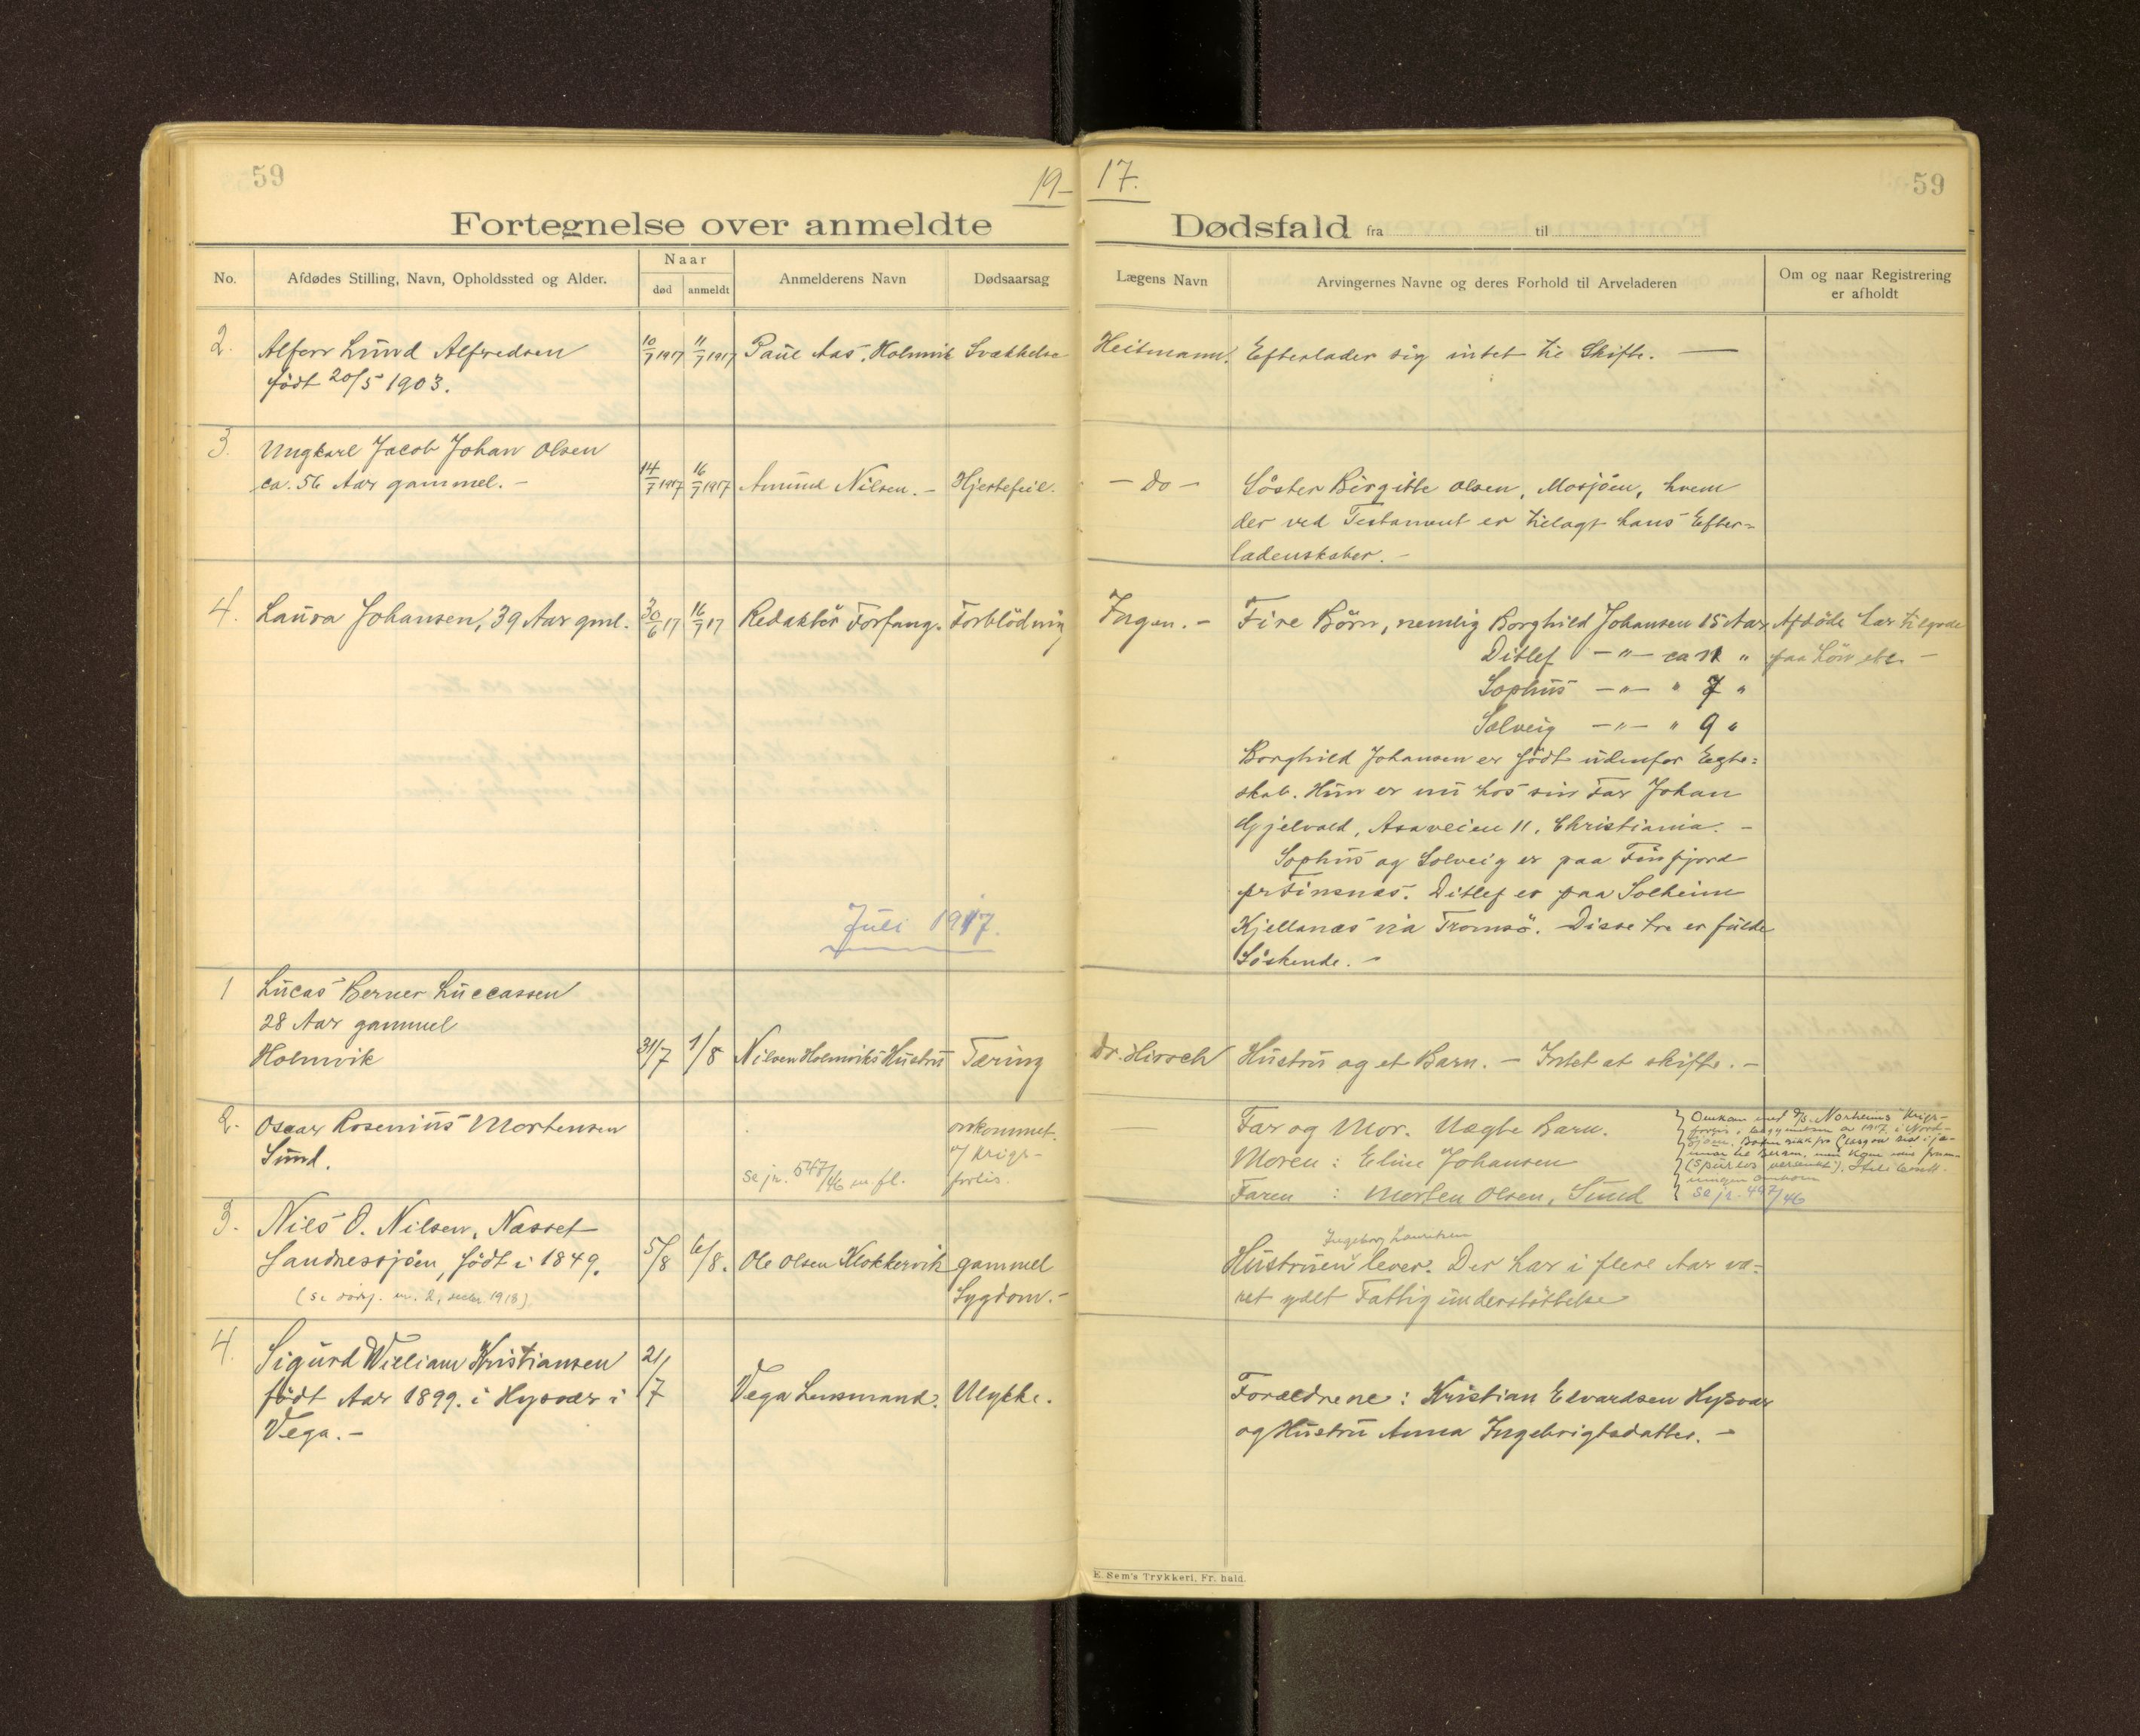 59
19-
17.
59
Fortegnelse over anmeldte
Dødsfald fra til
No.
Afdødes Stilling, Navn, Opholdssted og Alder.
Naar
død
anmeldt
Anmelderens Navn
Dødsaarsag
Lægens Navn
Arvingernes Navne og deres Forhold til Arveladeren
Om og naar Registrering
er afholdt
2. Lund Alfredsen
født 20/5 1903.
10/7 1917
11/7 1917
Paul Aas, Holmvik
Svækkelse
Heitmann.
Efterlader sig intet til Skifte. —
3. Ungkarl Jacob Johan Olsen
ca. 56 Aar gammel. -
14/7 1917
16/7 1917
Amund Nilsen. -
Hjertefeil.
- Do -
Søster Birgitte Olsen, Mosjøen, hvem
der ved Testament er tillagt hans Efter=
ladenskaber. -
4. Laura Johansen, 39 Aar gml.
30/6 17
16/7 17
Redaktør Forfang.
Forblødning
Ingen. -
Fire Børn, nemlig Borghild Johansen 15 Aar
Ditlef -"- ca 11 "
Sophus -"- " 7 "
Solveig -"- " 9 "
Borghild Johansen er født udenfor Egte=
skab. Hun er nu hos sin Far Johan
Gjelvold, Asaveien 11, Christiania. -
Sophus og Solveig er paa Finfjord
pr Finsnæs. Ditlef er paa Solheim
Kjellanæs via Tromsø. Disse tre er fulde
Søskende. -
Afdøde har tilgode
paa Løn etc. -
Juli 1917.
1 Lucas Berner Luccassen
28 Aar gammel
Holmvik
31/7
1/8
Nilsen Holmviks Hustru
Tæring
Dr. Hirsch
Hustru og et Barn. - Intet at skifte. -
2. Oscar Rosenius Mortensen
Sund.
se jr. 547/46 m. fl.
omkommet
v/ Krigs-
forlis.
—
Far og Mor. Uægte Barn.
Moren : Eline Johansen
Faren : Morten Olsen, Sund
Omkom med D/S. Norheims Krigs-
forlis, i 1917 i Nord-
sjøen.
se jr. 497/46
3. Nils O. Nilsen, Næsset
Sandnessjøen, født i 1849.
5/8
6/8.
Ole Olsen Klokkervik
gammel
Sygdom. -
Ingeborg Lauritsen
Hustruen lever. Der har i flere Aar væ=
ret ydet Fattigunderstøttelse
4. Sigurd William Kristiansen
født Aar 1899. i Hysvær i
Vega. -
21/7
Vega Lensmand.
Ulykke.
Forældrene: Kristian Edvardsen Hysvær
og Hustru Anna Ingebrigtsdatter. -
E. Sem's Trykkeri, Fr. hald.